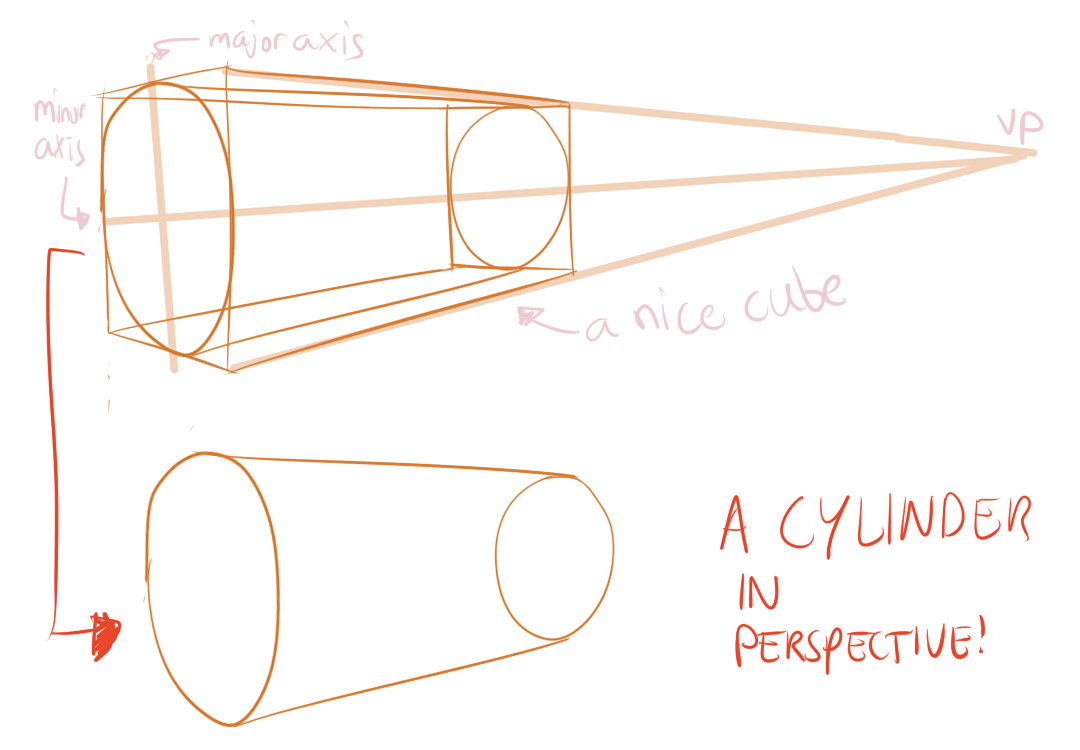 major axis
minor
axis
vp
a nice cube
A CYLINDER
IN
PERSPECTIVE!